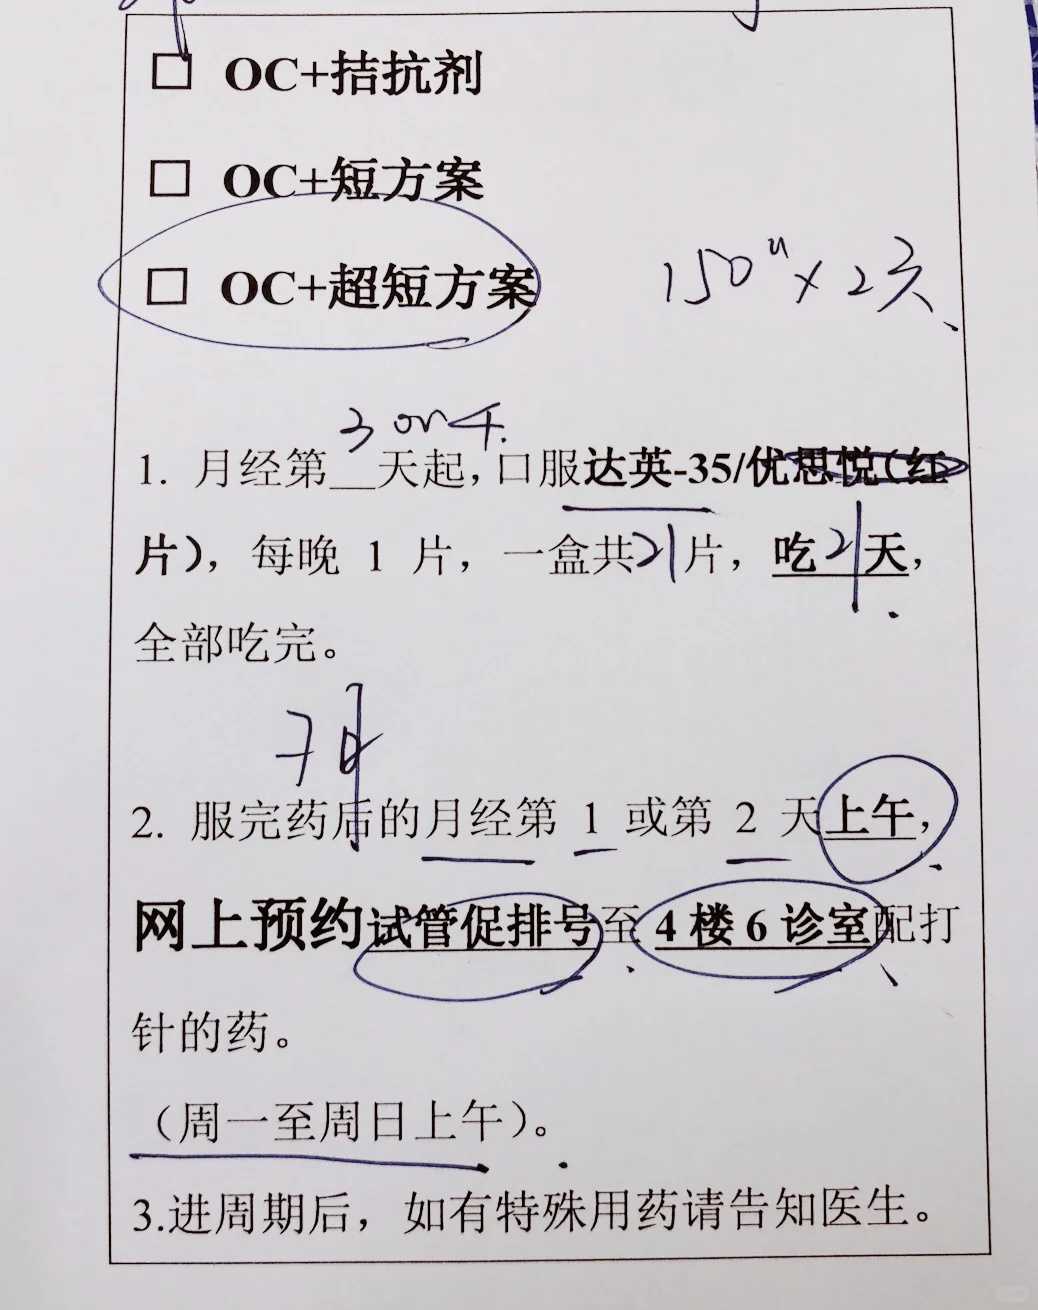 □ OC+拮抗剂
□ OC+短方案
□ OC+超短方案
150u×2天
3 or 4.
1. 月经第__天起，口服达英-35/优思悦（红
片），每晚 1 片，一盒共21片，吃21天，
全部吃完。
2. 服完药后的月经第 1 或第 2 天上午，
网上预约试管促排号至 4 楼 6 诊室配打
针的药。
（周一至周日上午）。
3.进周期后，如有特殊用药请告知医生。